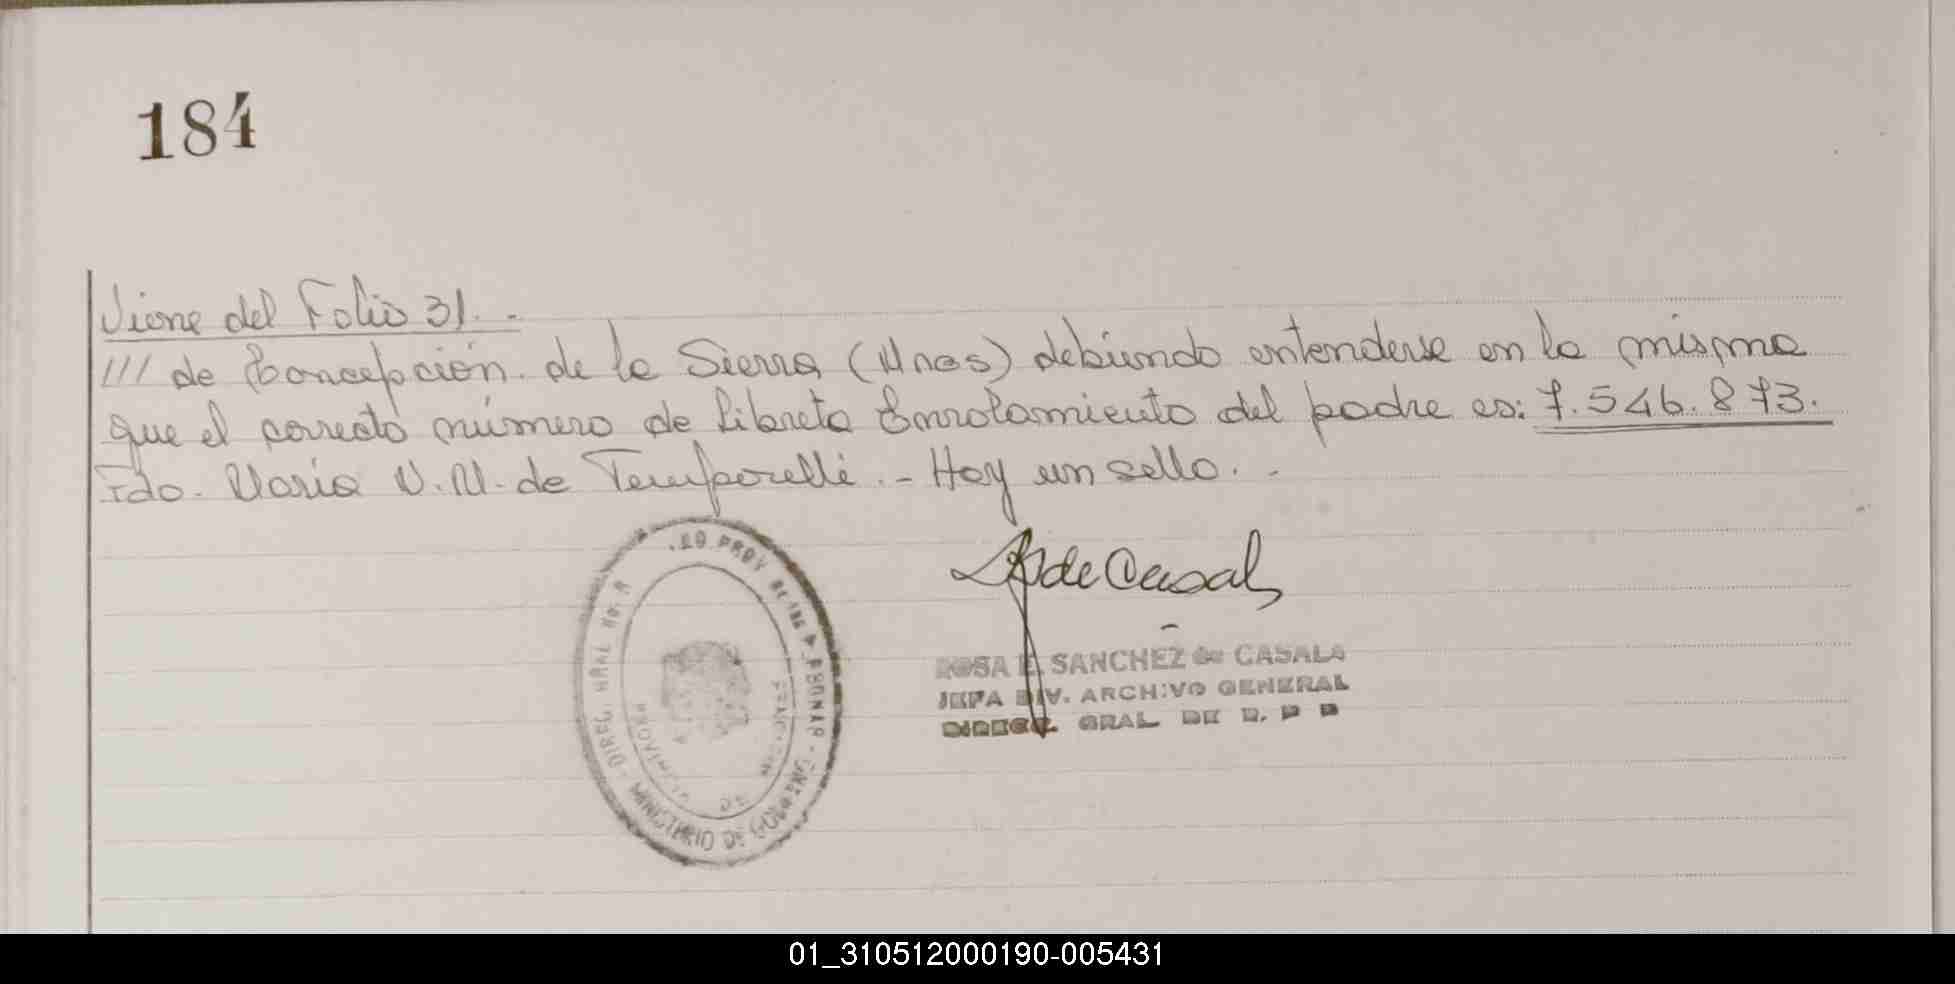 184
Viene del Folio 31. -
/// de Concepción de la Sierra (Mnes) debiendo entenderse en la misma
que el correcto número de Libreta Enrolamiento del padre es: 7.546.873.
Fdo. María N. M. de Temporelli. - Hay un sello. -
de Casala
ROSA E. SANCHEZ de CASALA
JEFA DIV. ARCHIVO GENERAL
DIRECC. GRAL. DE R. P P
MINISTERIO DE GOBIERNO
PROVINCIA DE
01_310512000190-005431